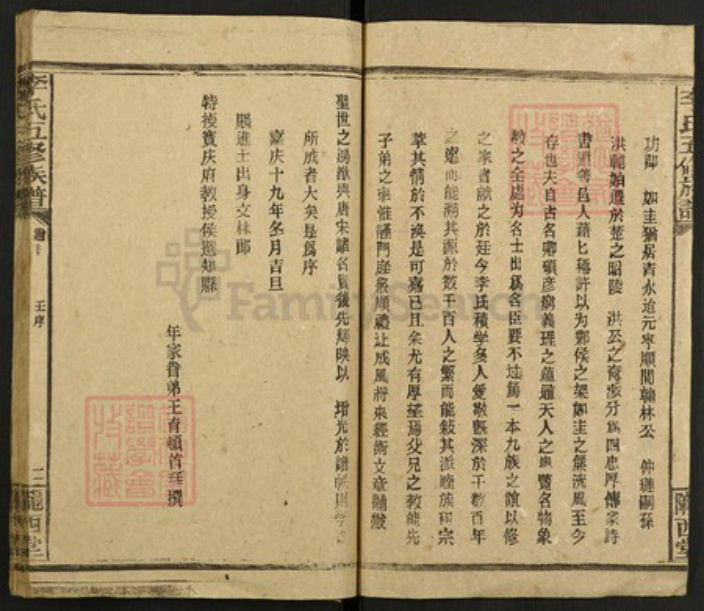 功郎 如圭猶居吉永迨元寧順間翰林公 仲璉嗣孫
洪範始遷於楚之昭陵 洪公之裔派分為四忠厚傳家詩
書 邑人藉匕稱許以为鄴侯之架如圭之廉洗風至今
存也夫自古名卿碩彦窮義理之蘊通天人之奥覽名物象
数之全處为名士出爲名臣要不过篤一本九族之誼以修
之家者献之於廷今李氏積学多人愛敬旣深於千数百年
之遙而能溯其源於数千百人之繁而能敍其派睦族和宗
萃其情於不渙是可嘉已且余尤有厚望焉父兄之教能先
子弟之率惟謹門庭 順禮让成風将來經術文章黼黻
聖世之 興唐宋諸名賢後先輝映以 增光於譜帙則学
所成者大矣是爲序
嘉庆十九年冬月吉旦
賜進士出身文林郎
特授寶庆府教授侯選知縣
年家眷弟王育頓首拜撰
李氏五修族譜
王序
三
隴西堂
李氏五修族譜
隴西堂
特藏
FamilySearch